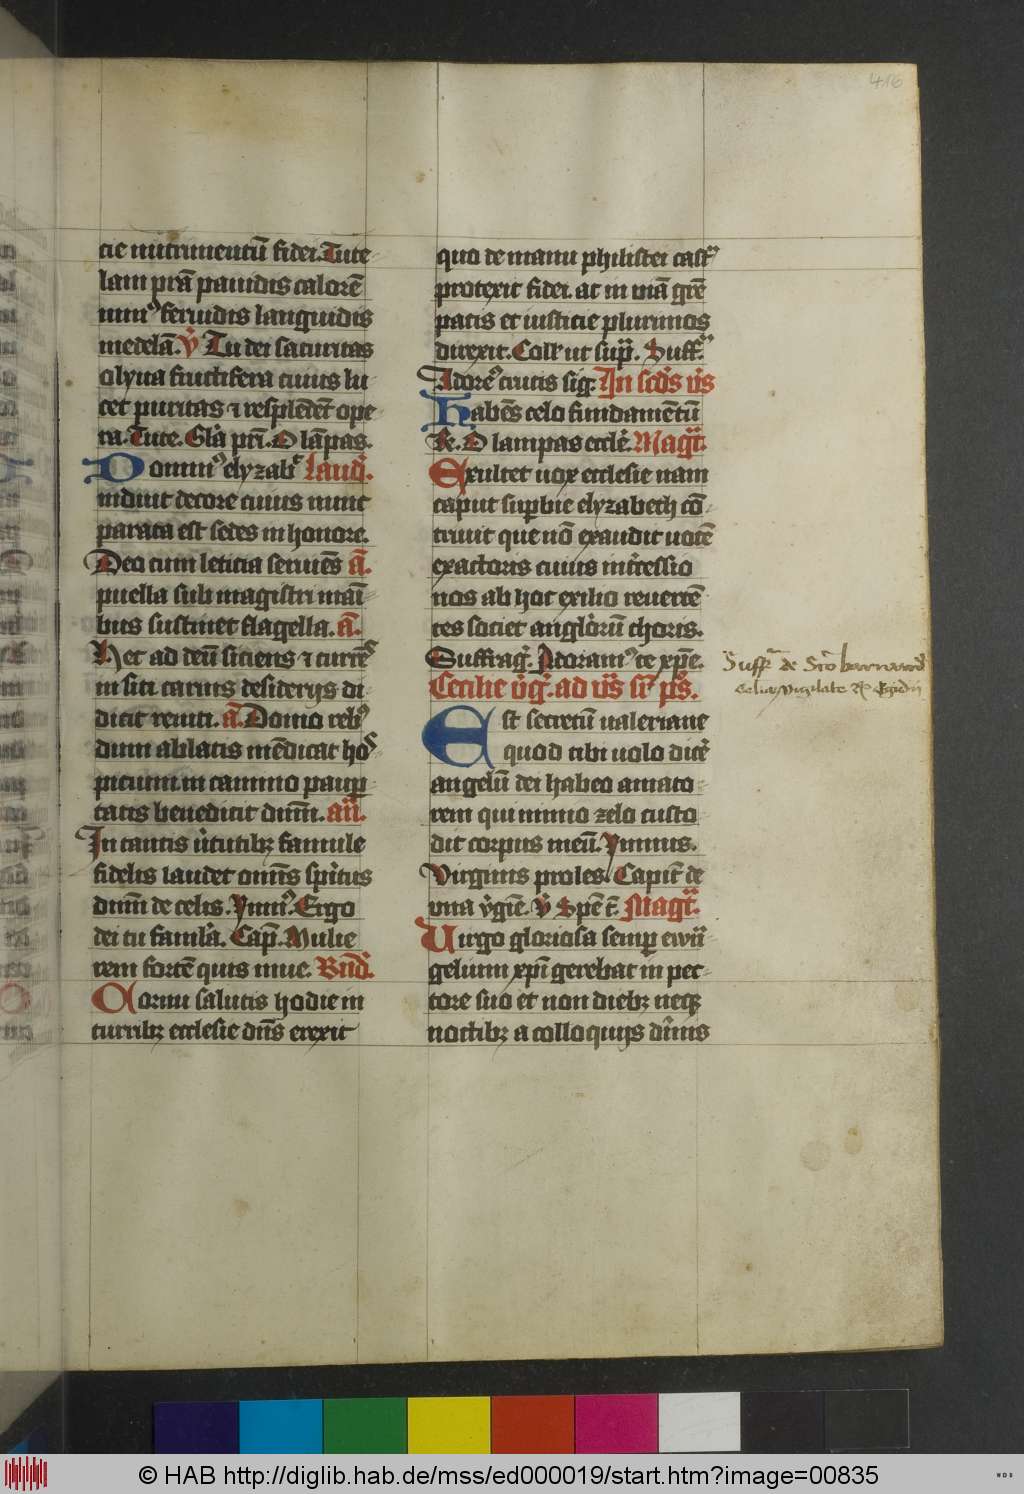 416
cie nutrimentū fidei. Tute-
lam prā pauidis calorē
minꝰ feruidis languidis
medelā. v̄ Tu dei saturitas
olyua fructifera cuius lu-
cet puritas ⁊ resplēdēt ope-
ra. Tute. Glā pri. O lāpas.
Domiꝰ elyzabt Laud.
induit decore cuius nunc
parata est sedes in honore.
Deo cum leticia seruiēs ā.
puella sub magistri mani-
bus sustinet flagella. ā.
Hec ad deū siciens ⁊ currēs
in siti carnis desiderijs di-
dicit reniti. ā. Domo rebꝰ
dum ablatis mēdicat hos-
picium in camino paup-
tatis benedicit dnm. añ.
In tantis ututibꝫ famule
fidelis laudet omnis spiritus
dnm de celis. Ymnꝰ. Ergo
dei tu famla. Cap. Mulie-
rem fortē quis inue. Bnd.
Cornu salutis hodie in
turribꝫ ecclesie dns erexit
quo de manu philistei castꝰ
protexit fidei. at in viā grē
pacis et iusticie plurimos
direxit. Coll ut sup. Suff.
Adorēꝰ crucis sig. In scdis vs
Habēs celo fundamētū
R. O lampas eccle. Magt.
Exultet uox ecclesie nam
caput superbie elyzabeth cō-
triuit que nō exaudit uocē
exactoris cuius intercessio
nos ab hoc exilio reuertē-
tes societ anglorū choris.
Suffrag. Adoramꝰ te xpe.
Cecilie vg. ad vs sr ps.
Est secretū ualeriane
quod tibi uolo dice
angelū dei habeo amato-
rem qui nimio zelo custo-
dit corpus meū. Ymnus.
Virginis proles. Capit de
vna vgie. v̄ Spē t. Magt.
Virgo gloriosa semp ewā-
gelium xpi gerebat in pec-
tore suo et non diebꝫ neqꝫ
noctibꝫ a colloquijs diuinis
Suffr de Sco bernward
Celicꝰ vigilate R Egidii
© HAB http://diglib.hab.de/mss/ed000019/start.htm?image=00835